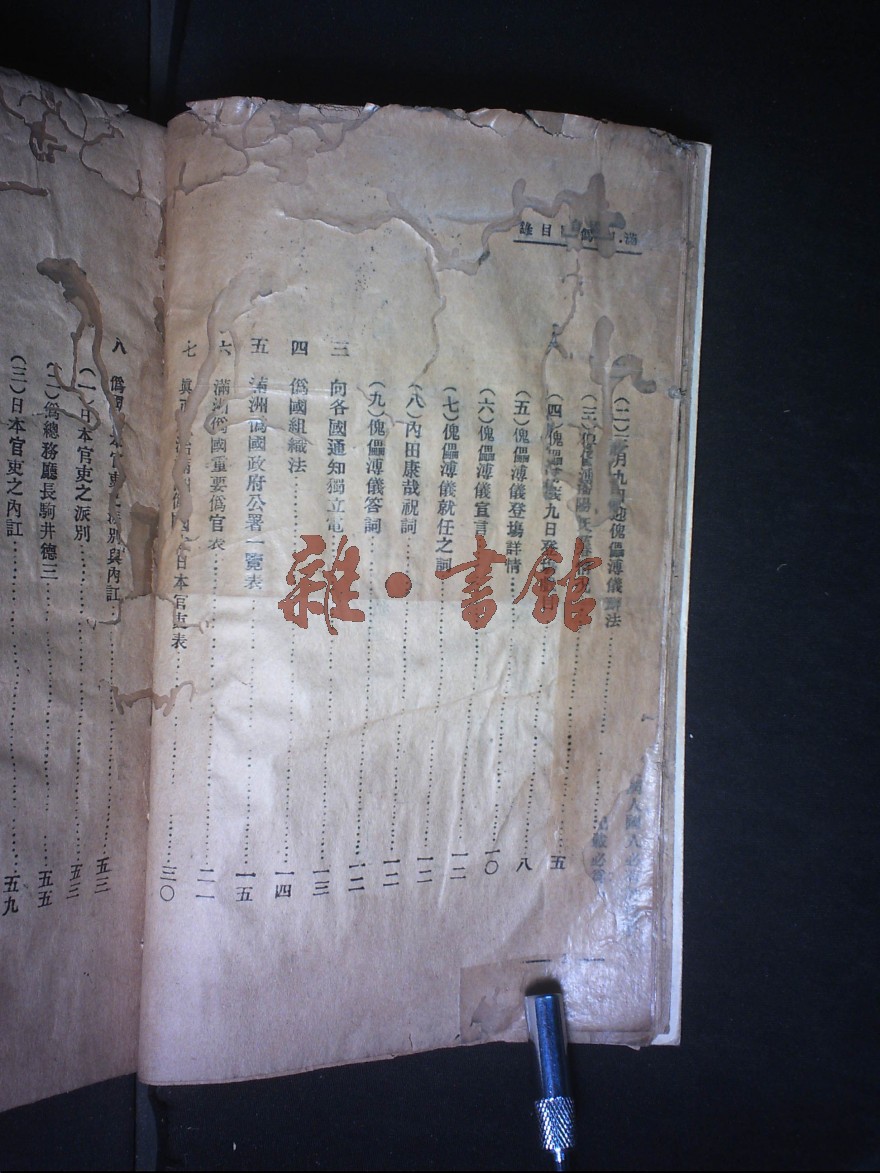 目錄
（二）月九日迎傀儡溥儀辦法
（三）
（四）傀儡溥儀九日 五
（五）傀儡溥儀登場詳情 八
（六）傀儡溥儀宣言 一〇
（七）傀儡溥儀就任之詞 一二
（八）內田康哉祝詞 一二
（九）傀儡溥儀答詞 一二
三 向各國通知獨立電 一三
四 僞國組織法 一四
五 滿洲僞國政府公署一覽表 一五
六 滿洲僞國重要僞官表 二一
七 日本官吏表 三〇
八 僞國日本官吏之派別與內訌 五三
（一）日本官吏之派別 五三
（二）僞總務廳長駒井德三 五五
（三）日本官吏之內訌 五九
雜·書館